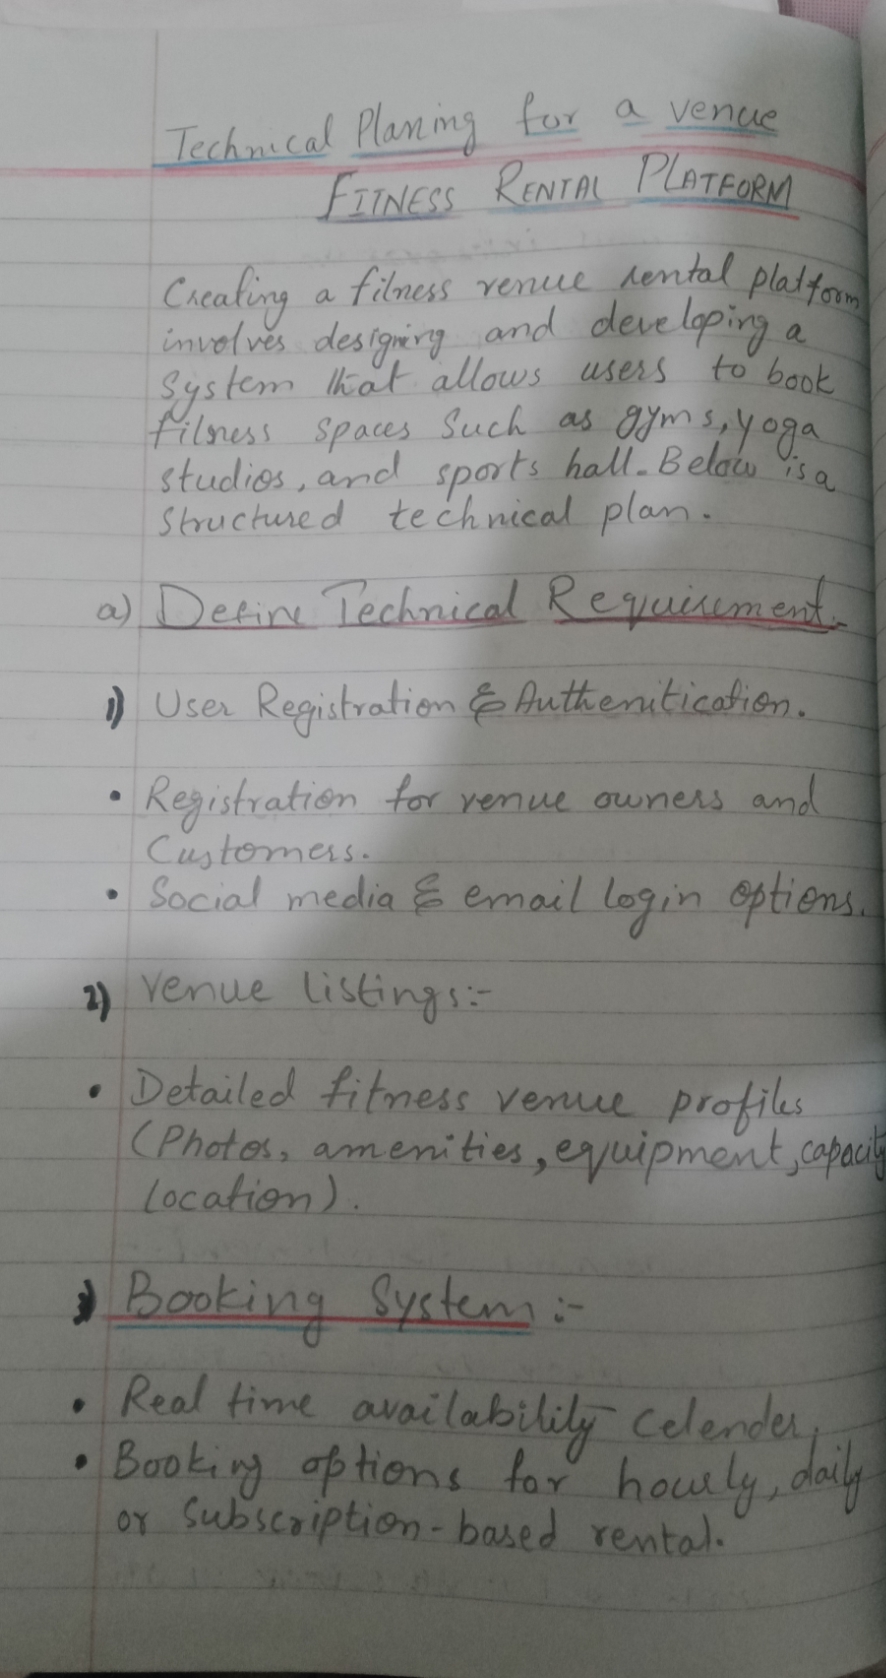 Technical Planing for a venue
FITNESS RENTAL PLATFORM
Creating a fitness venue rental platform
involves designing and developing a
system that allows users to book
fitness spaces such as gyms, yoga
studios, and sports hall. Below is a
structured technical plan.
a) Define Technical Requirement.
1) User Registration & Authenitication.
• Registration for venue owners and
Customers.
• Social media & email login options.
2) Venue listings:-
• Detailed fitness venue profiles
(Photos, amenities, equipment, capacity
location).
3) Booking System:-
• Real time availability Celender,
• Booking options for hourly, daily
or subscription-based rental.